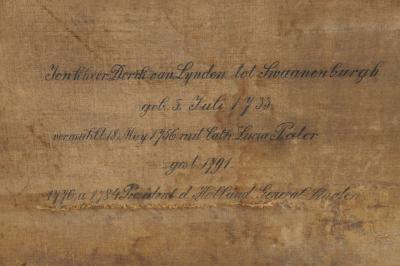 Jonkheer Derck van Lynden tot Swaanenburgh
geb. 5. Juli 1733.
vermählt 18. May 1756 mit Cath. Lucia
gest. 1791.
1776 u. 1784 Präsident d. Holländ. General Staaten